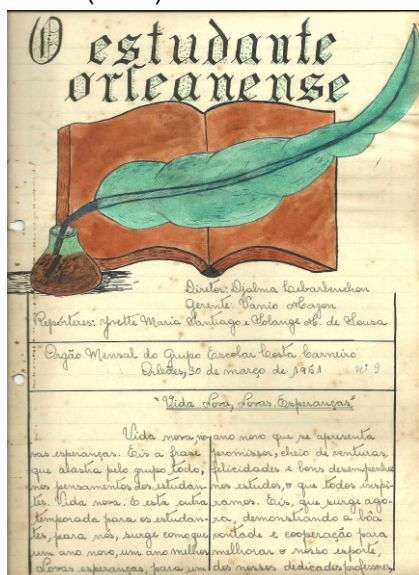 O estudante
orleanense
Diretor: Djalma Lebarbenchon
Gerente: Vanio Mazon
Repórteres: Yvette Maria Santiago e Solange M. de Sousa
Orgão Mensal do Grupo Escolar Costa Carneiro
30 de março de nº 9
"Vida Nova, Novas Esperanças"
Vida nova, no
vas esperanças. Eis a frase
que alastra pelo grupo todo,
nos pensamentos dos estudan-
tes. Vida nova. E esta outra
temporada para os estudan-
tes, para nós, surge como que
um ano novo, um ano melhor
Novas esperanças, para um
ano novo que se apresenta
promissor, cheio de venturas,
felicidades e bons desempenhos
nos estudos, o que todos inspi-
ramos. Eis, que surge ago-
ra, demonstrando a bôa
vontade e cooperação para
melhorar o nosso esporte,
dos nossos dedicados professores,